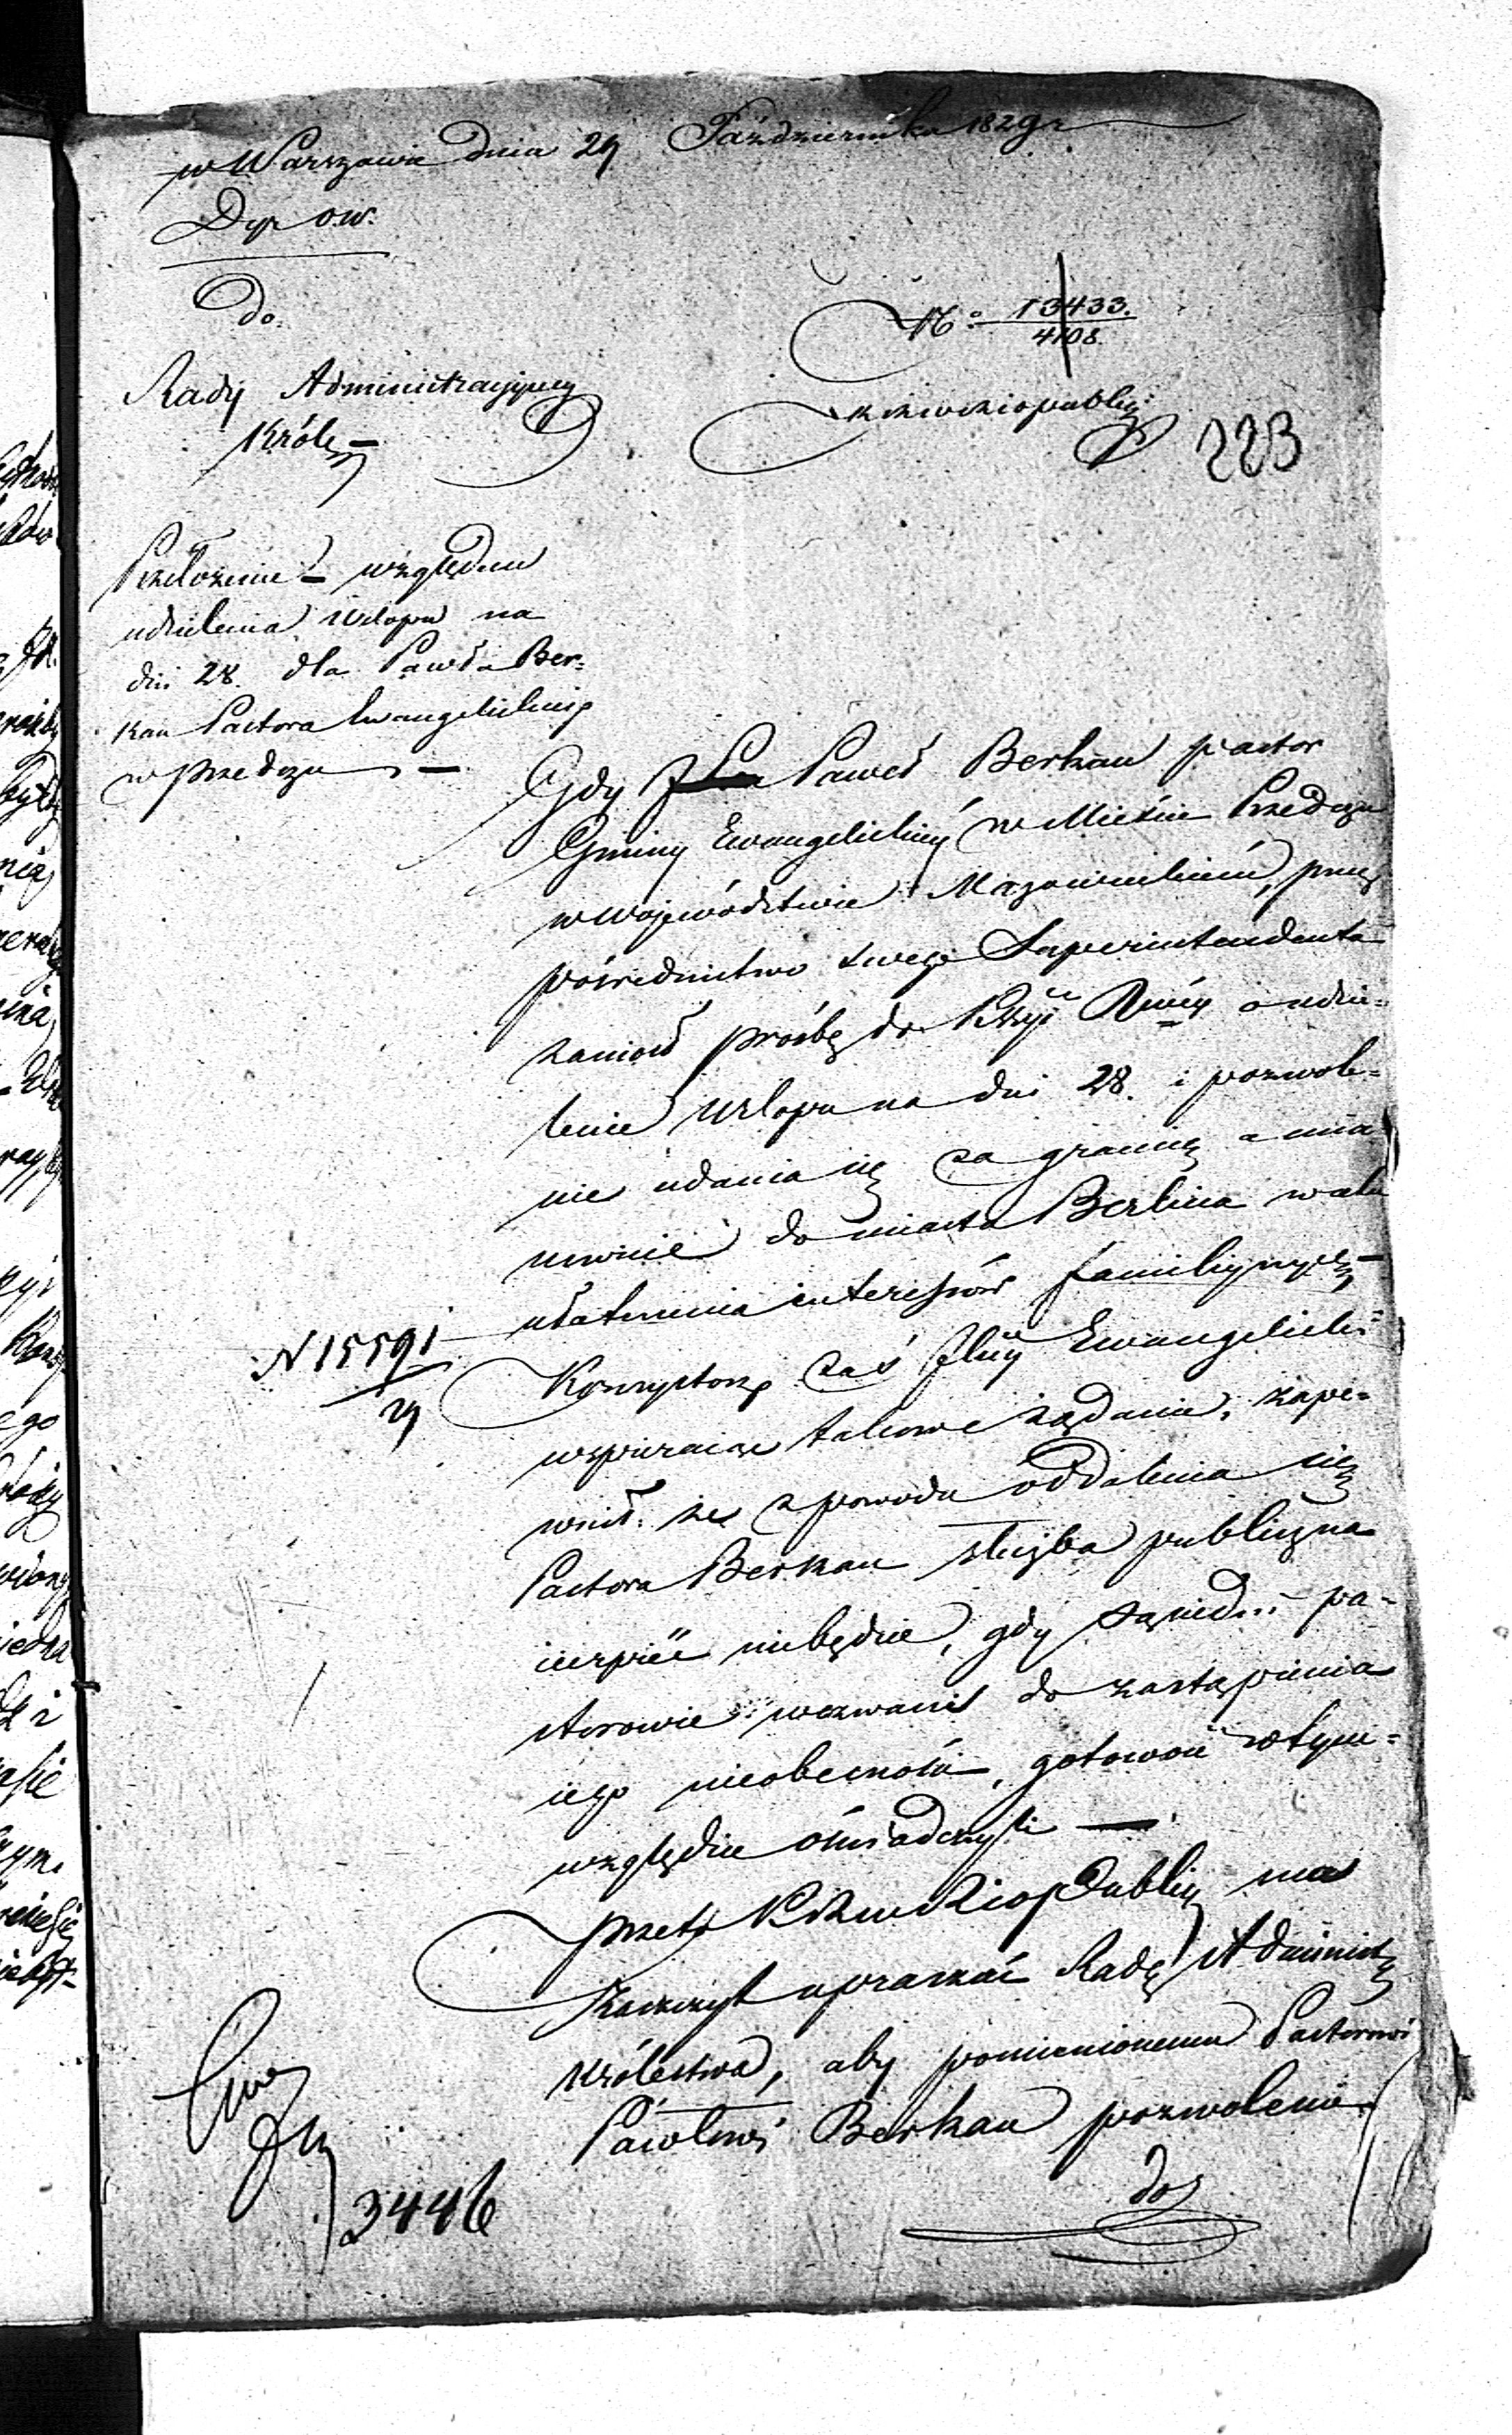 w Warszawie dnia 29 Października 1829 r
Dyr O.W.
Do.
No 13433.
4108.
Rady Administracyjney
Króle
KRzWRziOPublicz
223
Przełożenie względem
udzielenia Urlopu na
dni 28. dla Pawła Ber=
kau Pastora Ewangelickiego
w Przedczu
Gdy Paweł Berkau pastor
Gminy Ewangelickiey w Mieście Przedczu
w Województwie Mazowieckiem, przez
pośrednictwo swego Superintendenta
zaniosł prośbę do o udzie=
lenie Urlopu na dni 28. i pozwole=
nie udania się za granicę a mia
nowicie do miasta Berlina w celu
ułatwienia interessów familiynych,
N 15591
29
Konsystorz zaś Jlny Ewangelicki
wspieraiąc takowe żądanie, zape=
wnił. że z powodu oddalenia się
Pastora Berkau służba publiczna
cierpieć niebędzie, gdy sąsiedni pa=
storowie wezwani do zastąpienia
iego nieobecności, gotowość w tym=
względzie oświadczyli
przeto KRzWRziOPublicz ma
zaszczyt upraszać Radę Administ
Królestwa, aby pomienionemu Pastorowi
Pawłowi Berkau pozwolenie
do
3446